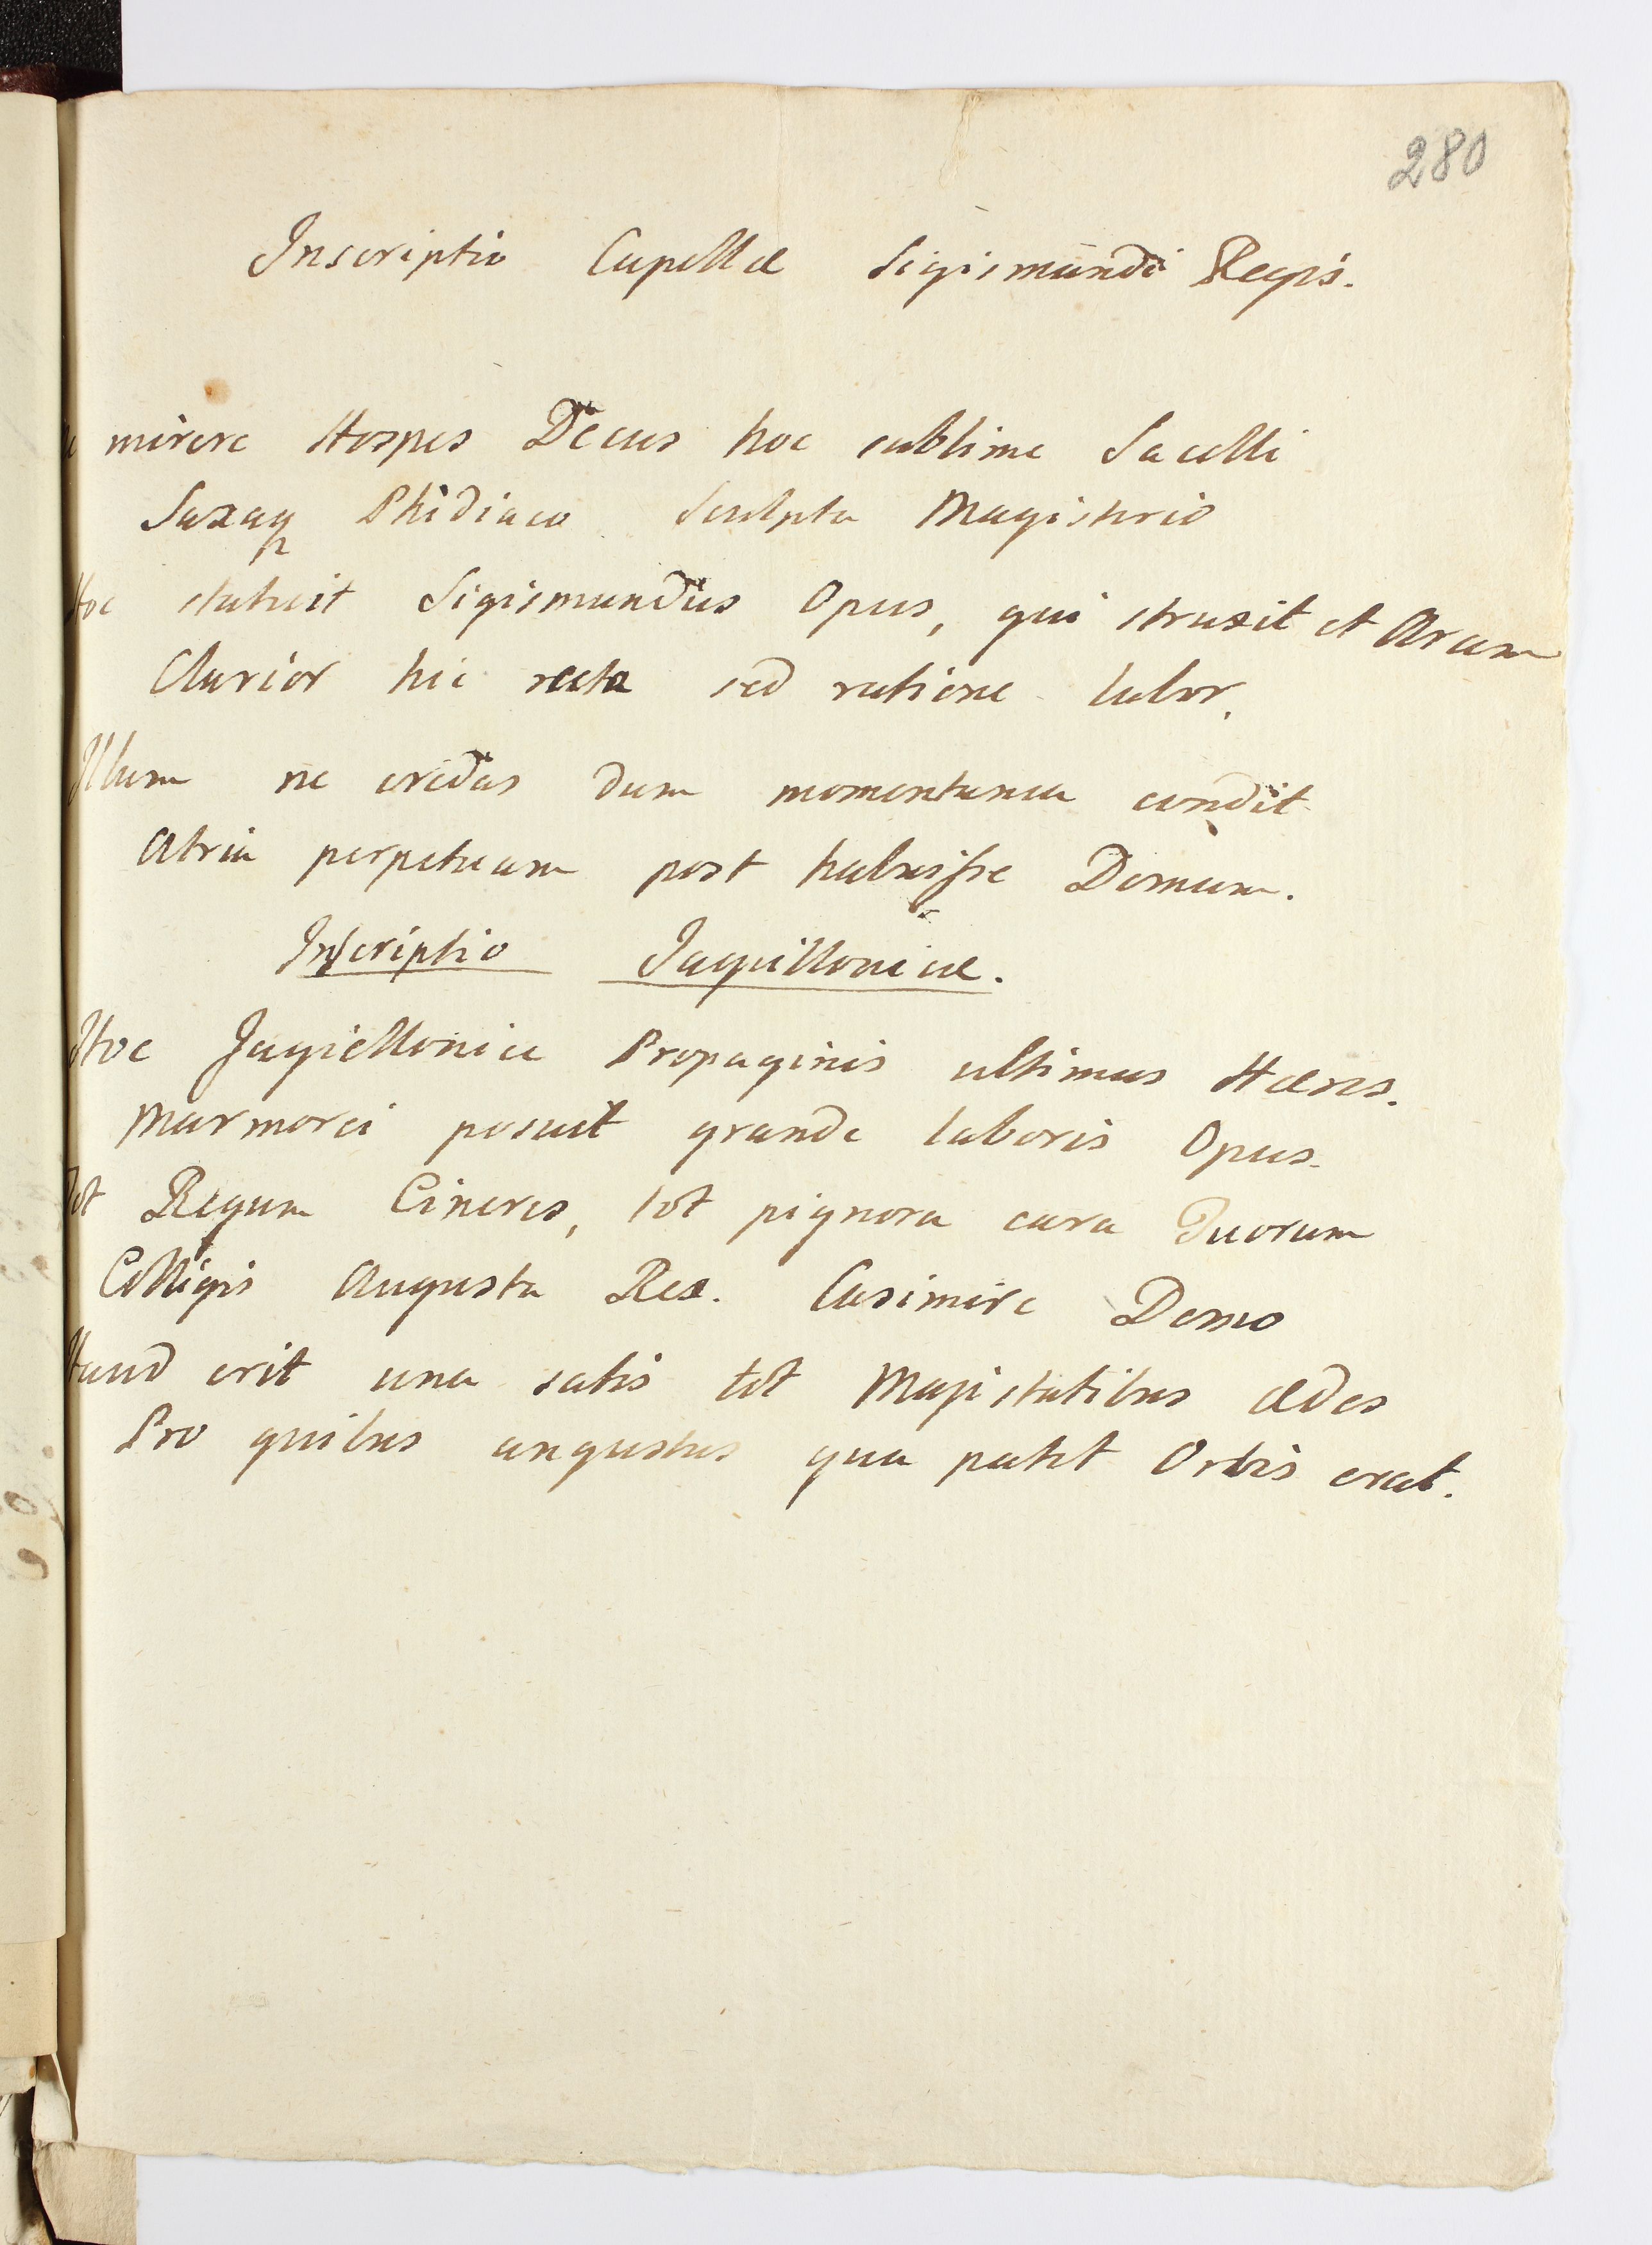 280
Inscriptio Capellæ Sigismundi Regis.
mirere Hospes Decus hoc sublime Sacelli
Saxaq Phidiaco Sculpta Magisterio
Hoc statuit Sigismundus Opus, qui struxit et Aram
Clarior hic recta sed ratione labor.
Illum ne credas dum momentanea condit
Atria perpetuam post habuisse Domum.
Inscriptio Jagielloniæ.
Hoc Jagiellonicæ Propaginis ultimus Hæres.
Marmorei posuit grande laboris Opus.
Tot Regum Cineres, tot pignora cara Tuorum
Colligis Augusta Rex. Casimire Domo
Haud erit una satis tot Majestatibus ædes
Pro quibus angustus qua patet Orbis erat.